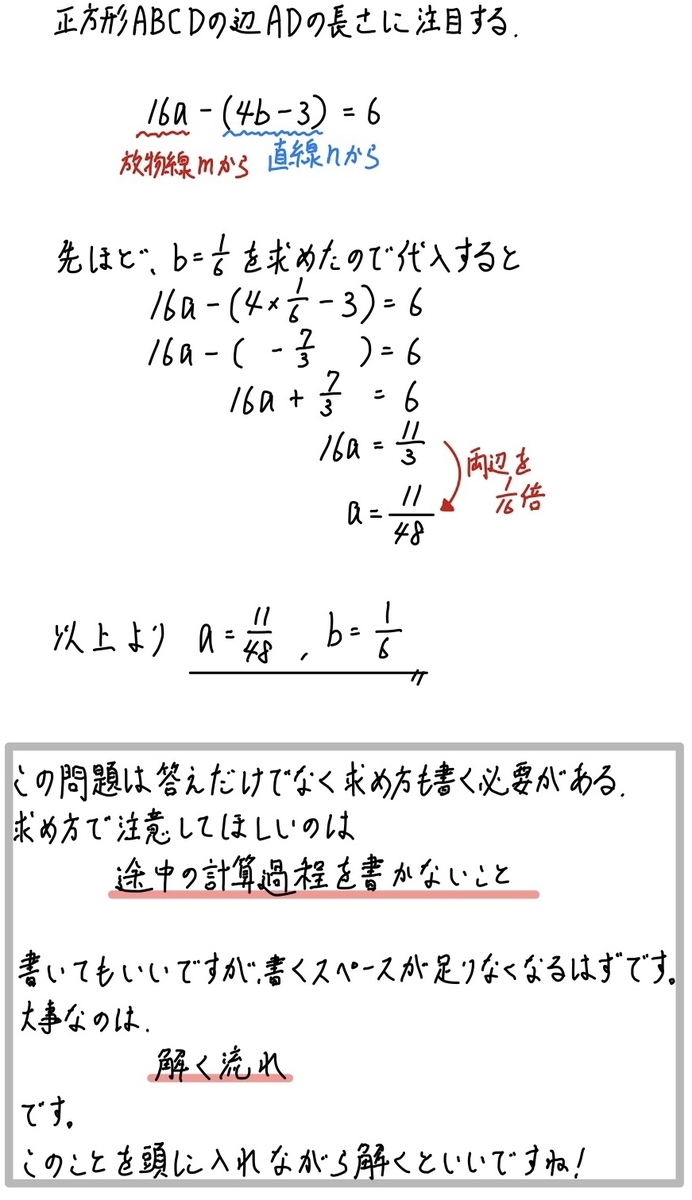 正方形ABCDの辺ADの長さに注目する.
16a - (4b-3) = 6
放物線mから 直線nから
先ほど、b=1/6を求めたので代入すると
16a - (4×1/6 - 3) = 6
16a - ( - 7/3 ) = 6
16a + 7/3 = 6
16a = 11/3
両辺を
1/16倍
a = 11/48
以上より a = 11/48 , b = 1/6
この問題は答えだけでなく求め方も書く必要がある.
求め方で注意してほしいのは
途中の計算過程を書かないこと
書いてもいいですが、書くスペースが足りなくなるはずです。
大事なのは.
解く流れ
です。
このことを頭に入れながら解くといいですね!